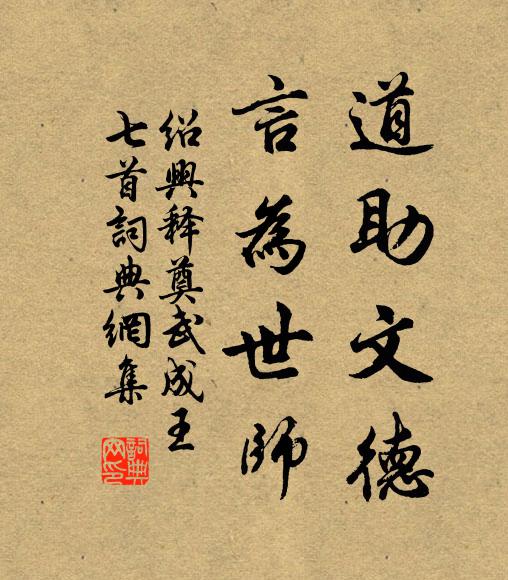 道助文德
言為世師
紹興释奠武成王
七首詞典網集
詞典網印